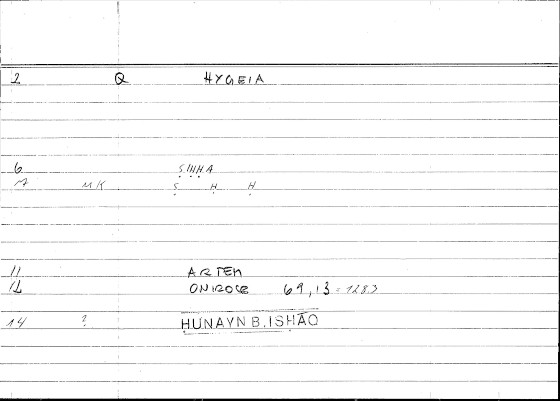 2 Q HYGEIA
6 SIHHA
M MK S H H
11 ARTEM
12 ONIROCR 69,13 = 128,3
14 ? HUNAYN B. ISHĀQ